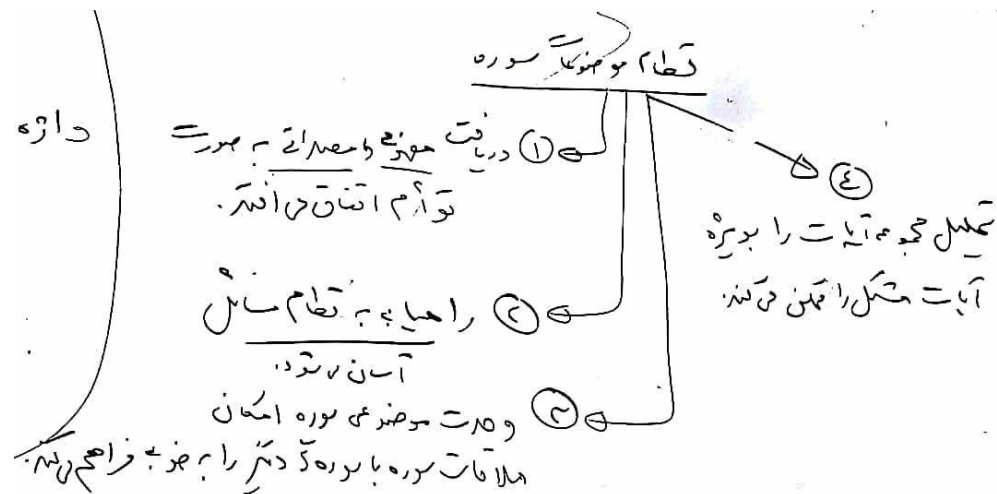 نظام موضوعات سوره
واژه
① دریافت مفهومی و مصداقی به صورت
توأم اتفاق می‌افتد.
② راهیابی به نظام مسائل
آسان می‌شود.
③ وحدت موضوعی سوره امکان
ملاقات سوره با سوره‌های دیگر را به خوبی فراهم می‌کند.
④
تحلیل مجموعه آیات را بویژه
آیات مشکل را ممکن می‌کند.